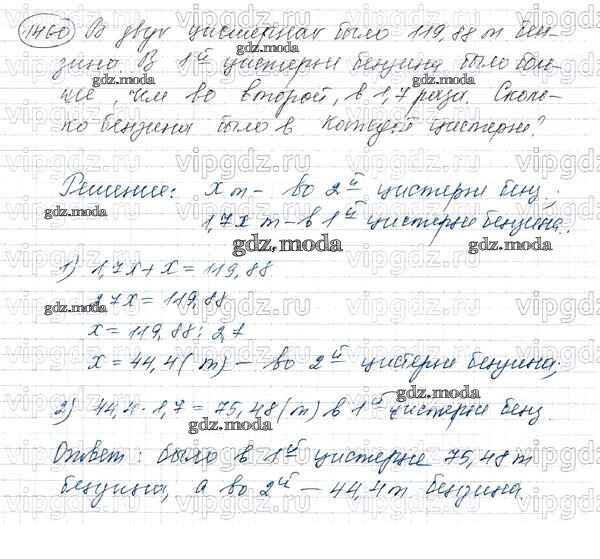 1460 В двух цистернах было 119,88 т бен-
зина. В 1й цистерне бензина было боль-
ше, чем во второй, в 1,7 раза. Сколь-
ко бензина было в каждой цистерне?
Решение: x т - во 2й цистерне бенз.;
1,7x т - в 1й цистерне бензина.
1) 1,7x + x = 119,88
2,7x = 119,88
x = 119,88 : 2,7
x = 44,4 (т) - во 2й цистерне бензина;
2) 44,4 · 1,7 = 75,48 (т) в 1й цистерне бенз.
Ответ: было в 1й цистерне 75,48 т
бензина, а во 2й - 44,4 т бензина.
vipgdz.ru
gdz.moda